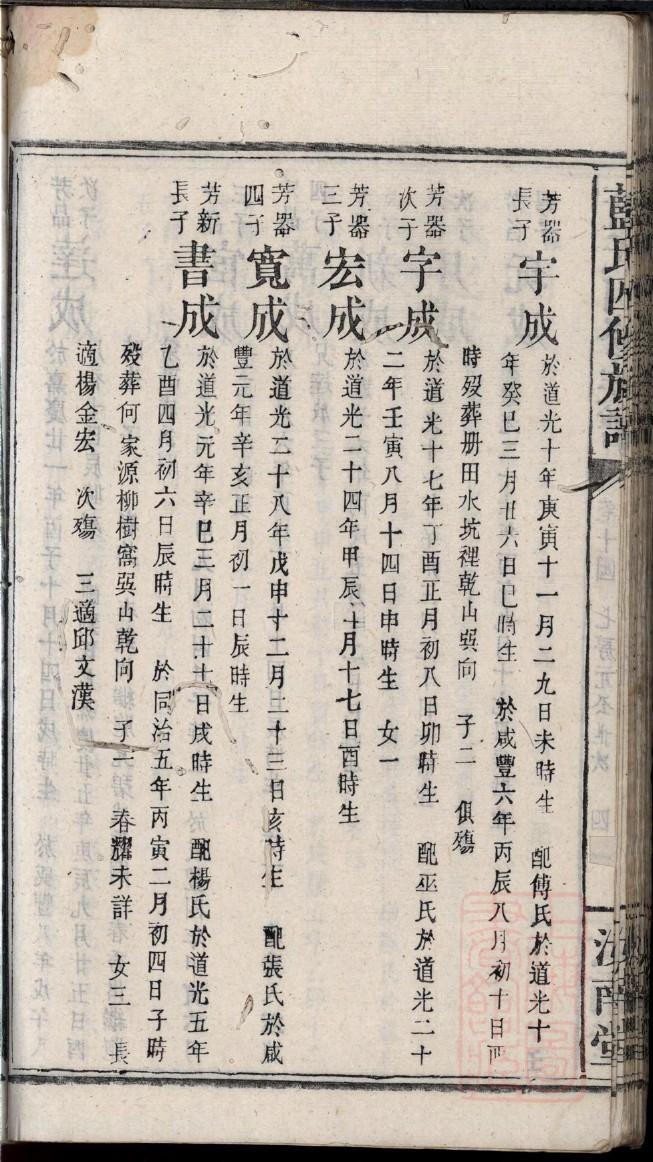 藍氏四修族譜
汝南堂
芳器長子宇成於道光十年庚寅十一月二九日未時生 配傅氏於道光十
年癸巳三月廿六日巳時生 於咸豐六年丙辰八月初十日酉
時殁葬册田水坑裡乾山巽向 子二 俱殤
芳器次子字成於道光十七年丁酉正月初八日卯時生 配巫氏於道光二十
二年壬寅八月十四日申時生 女一
芳器三子宏成於道光二十四年甲辰十月十七日酉時生
芳器四子寬成於道光二十八年戊申十二月二十三日亥時生 配張氏於咸
豐元年辛亥正月初一日辰時生
芳新長子書成於道光元年辛巳三月二十日戌時生 配楊氏於道光五年
乙酉四月初六日辰時生 於同治五年丙寅二月初四日子時
殁葬何家源柳樹窩巽山乾向 子一 春耀未詳 女三 長
適楊金宏 次殤 三適邱文漢